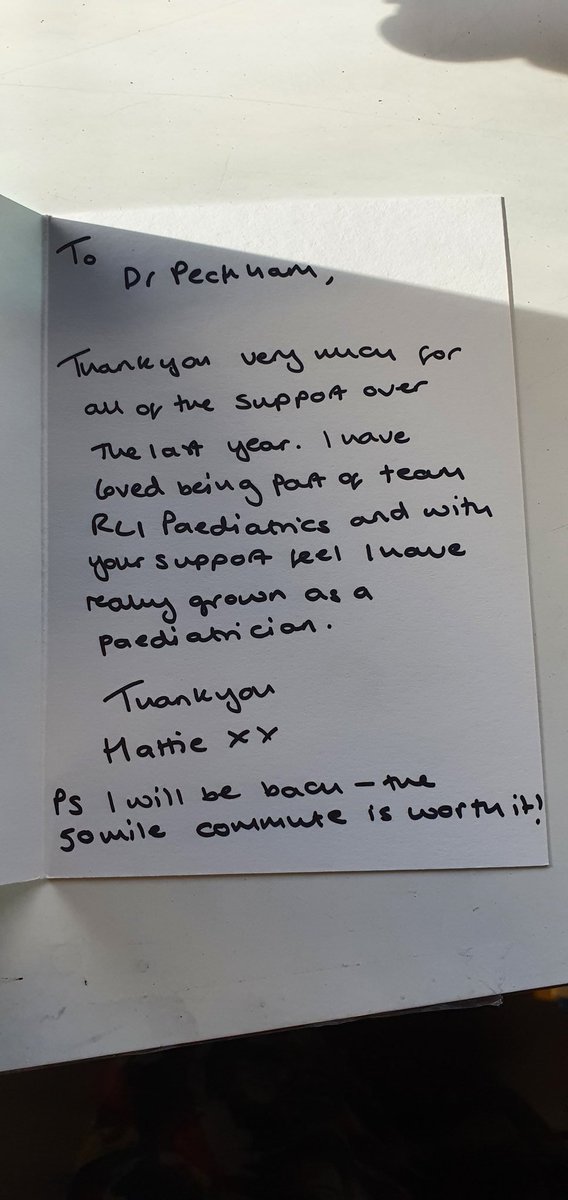 To
Dr Peckham,
Thankyou very much for
all of the support over
the last year. I have
loved being part of team
RLI Paediatrics and with
your support feel I have
really grown as a
paediatrician.
Thankyou
Hattie xx
PS I will be back - the
50mile commute is worth it!